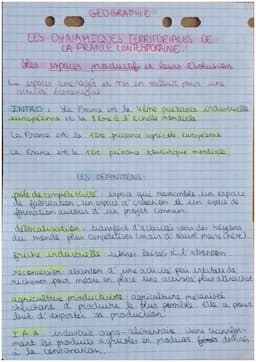 GEOGRAPHIE
LES DYNAMIQUES TERRITORIALES DE
LA FRANCE CONTEMPORAINE.
Les espaces productifs et leurs évolution
espaces aménagés et mis en valeur pour une
activité économique
INTRO : La France est la 4ème puissance industrielle
européenne et la 8ème à l'échelle mondiale
La France est la 1ère puissance agricole européenne
La France est la 1ère puissance touristique mondiale.
LES DÉFINITIONS :
pôle de compétitivité : espace qui rassemble un espace
de fabrication, un espace d'création et un espace de
formation autour d'un projet commun.
délocalisation : transfert d'activités vers des régions
du monde plus compétitives (main d'œuvre moins chère).
friche industrielle : usines laissé à l'abandon.
reconversion : abandon d'une activité peu créatrice de
richesses pour mettre en place une activité plus attractive
agriculture productiviste : agriculture mécanisée
cherchant à produire le plus possible. Elle a pour
but d'exporter sa production.
I.A.A : industrie agro-alimentaire. Usine transfor-
mant les produits agricoles en produits destinés
à la consommation.